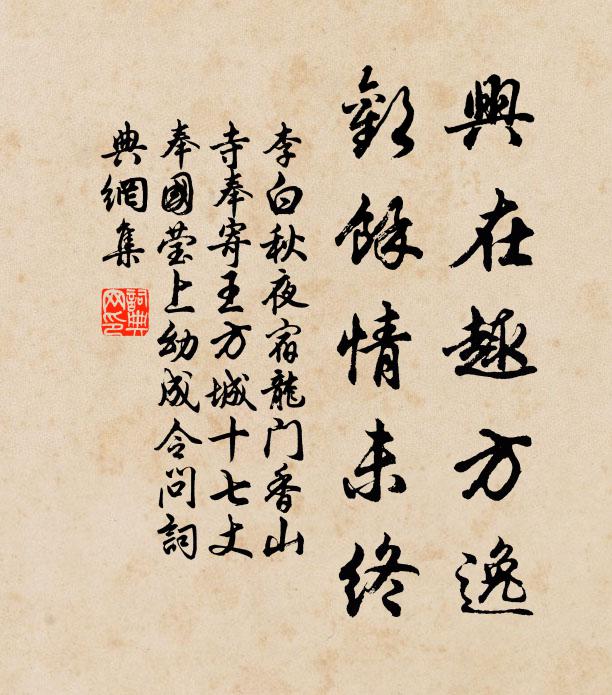 興在趣方逸
歡餘情未終
李白秋夜宿龍門香山
寺奉寄王方城十七丈
奉國瑩上幼成令問詞
典網集
詞典网印